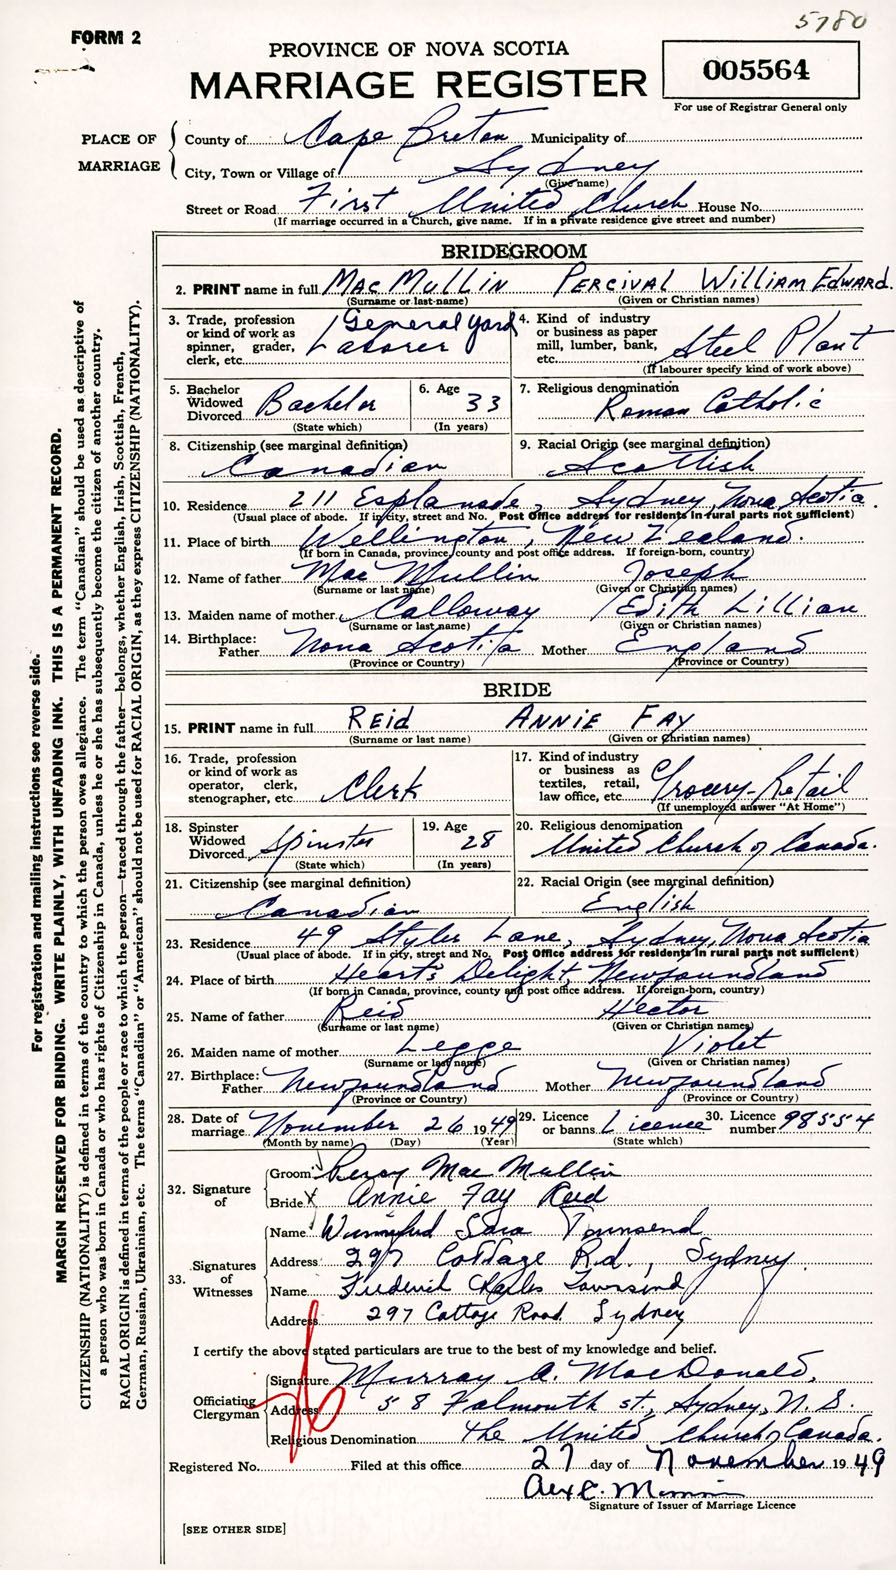 5780
FORM 2
PROVINCE OF NOVA SCOTIA
MARRIAGE REGISTER
005564
For use of Registrar General only
PLACE OF MARRIAGE
County of Cape Breton Municipality of
City, Town or Village of Sydney
(Give name)
Street or Road First United Church House No.
(If marriage occurred in a Church, give name. If in a private residence give street and number)
BRIDEGROOM
2. PRINT name in full MacMullin Percival William Edward.
(Surname or last name) (Given or Christian names)
3. Trade, profession or kind of work as spinner, grader, clerk, etc. General Yard Laborer
4. Kind of industry or business as paper mill, lumber, bank, etc. Steel Plant
(If labourer specify kind of work above)
5. Bachelor Widowed Divorced Bachelor
(State which)
6. Age 33
(In years)
7. Religious denomination Roman Catholic
8. Citizenship (see marginal definition) Canadian
9. Racial Origin (see marginal definition) Scottish
10. Residence 211 Esplanade, Sydney, Nova Scotia.
(Usual place of abode. If in city, street and No. Post Office address for residents in rural parts not sufficient)
11. Place of birth Wellington, New Zealand.
(If born in Canada, province, county and post office address. If foreign-born, country)
12. Name of father MacMullin Joseph
(Surname or last name) (Given or Christian names)
13. Maiden name of mother Calloway Edith Lillian
(Surname or last name) (Given or Christian names)
14. Birthplace: Father Nova Scotia Mother England
(Province or Country) (Province or Country)
BRIDE
15. PRINT name in full Reid Annie Fay
(Surname or last name) (Given or Christian names)
16. Trade, profession or kind of work as operator, clerk, stenographer, etc. Clerk
17. Kind of industry or business as textiles, retail, law office, etc. Grocery-Retail
(If unemployed answer "At Home")
18. Spinster Widowed Divorced Spinster
(State which)
19. Age 28
(In years)
20. Religious denomination United Church of Canada.
21. Citizenship (see marginal definition) Canadian
22. Racial Origin (see marginal definition) English
23. Residence 49 Styles Lane, Sydney, Nova Scotia
(Usual place of abode. If in city, street and No. Post Office address for residents in rural parts not sufficient)
24. Place of birth Heart's Delight, Newfoundland
(If born in Canada, province, county and post office address. If foreign-born, country)
25. Name of father Reid Hector
(Surname or last name) (Given or Christian names)
26. Maiden name of mother Legge Violet
(Surname or last name) (Given or Christian names)
27. Birthplace: Father Newfoundland Mother Newfoundland
(Province or Country) (Province or Country)
28. Date of marriage November 26 1949 29. Licence or banns Licence 30. Licence number 98554
(Month by name) (Day) (Year) (State which)
32. Signature of
Groom Percy MacMullin
Bride X Annie Fay Reid
33. Signatures of Witnesses
Name Winnifred Sara Townsend
Address 297 Cottage Rd., Sydney.
Name Frederick Charles Townsend
Address 297 Cottage Road Sydney
I certify the above stated particulars are true to the best of my knowledge and belief.
Officiating Clergyman
Signature Murray A. MacDonald,
Address 58 Falmouth St., Sydney, N.S.
Religious Denomination The United Church of Canada.
Registered No. Filed at this office 27 day of November 1949
Signature of Issuer of Marriage Licence
[SEE OTHER SIDE]
For registration and mailing instructions see reverse side.
MARGIN RESERVED FOR BINDING. WRITE PLAINLY, WITH UNFADING INK. THIS IS A PERMANENT RECORD.
CITIZENSHIP (NATIONALITY) is defined in terms of the country to which the person owes allegiance. The term "Canadian" should be used as descriptive of
a person who was born in Canada or who has rights of Citizenship in Canada, unless he or she has subsequently become the citizen of another country.
RACIAL ORIGIN is defined in terms of the people or race to which the person—traced through the father—belongs, whether English, Irish, Scottish, French,
German, Russian, Ukrainian, etc. The terms "Canadian" or "American" should not be used for RACIAL ORIGIN, as they express CITIZENSHIP (NATIONALITY).